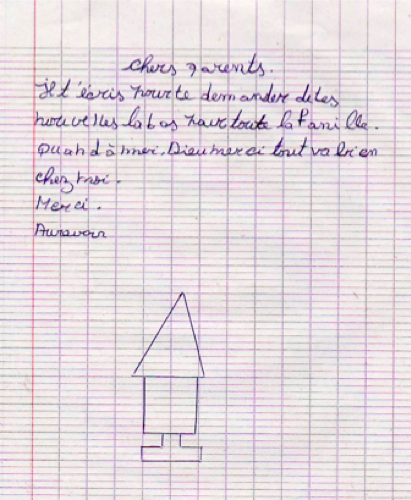 Chers parents.
Je t'écris pour te demander de tes
nouvelles labas pour toute la famille.
Quand à moi. Dieu merci tout va bien
chez moi.
Merci.
Aurevoir